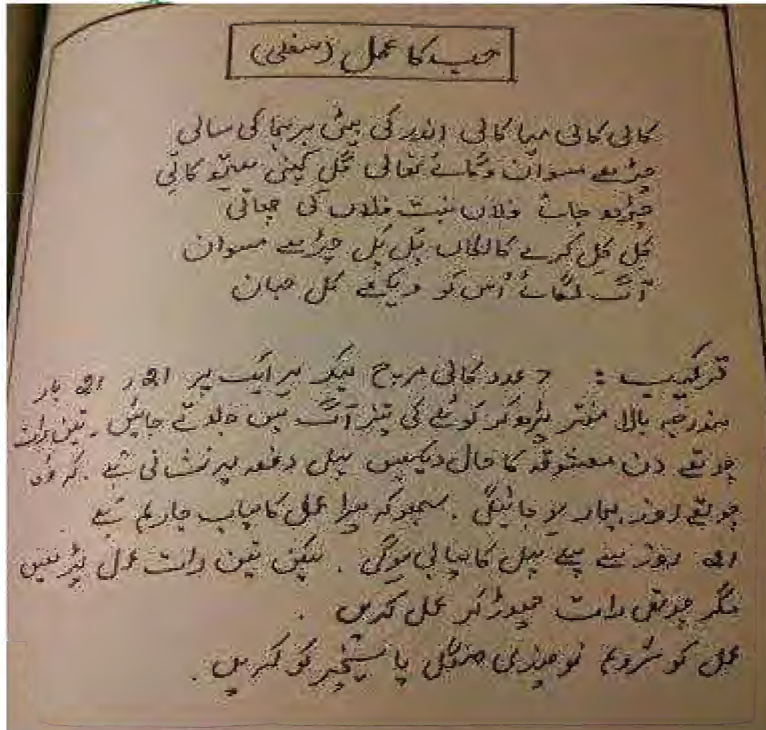 حب کا عمل (سفلی)
کالی کالی مہا کالی اندر کی بیٹی برہما کی سالی
چڑھے مسوان وگائے تھالی گل کپنی کالی
چڑھ جائے فلاں بنت فلاں کی چھاتی
کل کل کرے کالکاں پل پل چڑھے مسوان
آگ لگائے اُس کو دیکھے کل جہان
ترکیب : 7 عدد کالی مرچ لیکر ہر ایک پر 21 ، 21 بار
مندرجہ بالا منتر پڑھ کر کوئلے کی تیز آگ میں جلاتے جائیں . تین رات
چوتھے دن معشوقہ کا حال دیکھیں پہلی دفعہ یہ نشانی ہے . کہ وہ
چوتھے روز بیمار پڑ جائیگی . سمجھو کہ میرا عمل کامیاب جا رہا ہے
21 روز سے پہلے پہل کامیابی ہوگی . لیکن تین رات عمل پڑھیں
مگر چوتھی رات چھوڑ کر عمل کریں .
عمل کو شروع نوچندی منگل یا سنیچر کو کریں .